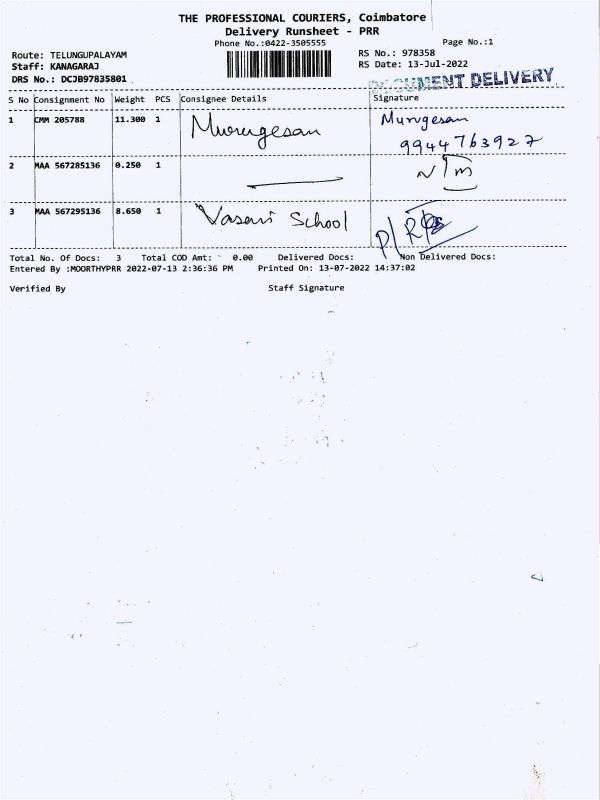 THE PROFESSIONAL COURIERS, Coimbatore
Delivery Runsheet - PRR
Phone No.:0422-3505555 Page No.:1
Route: TELUNGUPALAYAM RS No.: 978358
Staff: KANAGARAJ RS Date: 13-Jul-2022
DRS No.: DCJB97835801 DOCUMENT DELIVERY
S No Consignment No Weight PCS Consignee Details Signature
1 CMM 205788 11.300 1 Murugesan Murugesan
9944763927
2 MAA 567285136 0.250 1 N/m
3 MAA 567295136 8.650 1 Vasavi School
Total No. Of Docs: 3 Total COD Amt: 0.00 Delivered Docs: Non Delivered Docs:
Entered By :MOORTHYPRR 2022-07-13 2:36:36 PM Printed On: 13-07-2022 14:37:02
Verified By Staff Signature